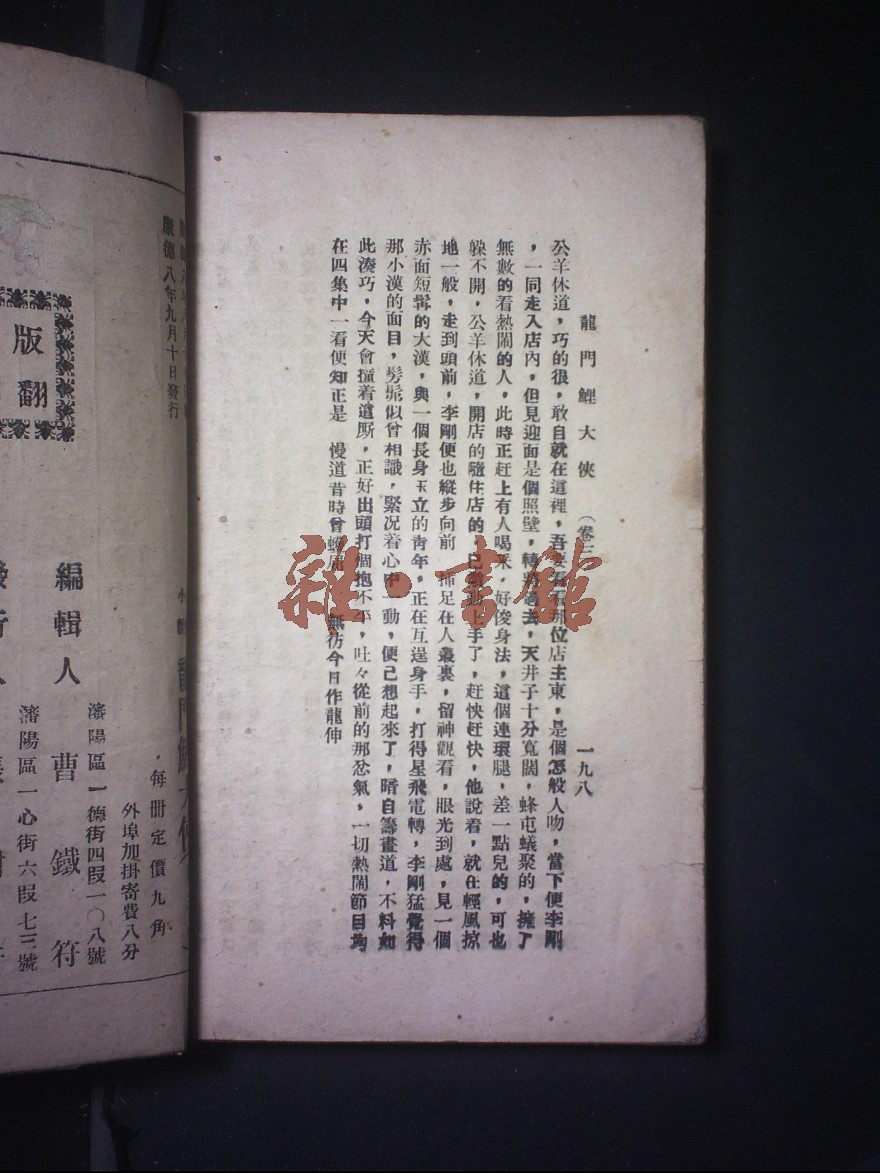 龍門鯉大俠 （卷三 一九八
公羊休道，巧的很，敢自就在這裡，吾要看看那位店主東，是個怎般人吻，當下便李剛
，一同走入店內，但見迎面是個照壁，轉過去，天井子十分寬闊，蜂屯蟻聚的，擁了
無數的看熱鬧的人，此時正赶上有人喝釆，好俊身法，這個連環腿，差一點兒的，可也
躲不開，公羊休道，開店的隨住店的，已動上手了，赶快赶快，他說着，就在輕風掠
地一般，走到頭前，李剛便也縱步向前 揷足在人叢裏，留神觀看，眼光到處，見一個
赤面短髯的大漢，與一個長身玉立的靑年，正在互逞身手，打得星飛電轉，李剛猛覺得
那小漢的面目，髣髴似曾相識，緊況着心中一動，便己想起來了，暗自籌畫道，不料如
此湊巧，今天會撞着這厮，正好出頭打個抱不平，吐々從前的那忿氣，一切熱鬧節目均
在四集中一看便知正是 慢道昔時曾 無彷今日作龍伸
康德八年九月十日發行
版
翻
編輯人 曹鐵符
瀋陽區一德街四叚一〇八號
瀋陽區一心街六叚七三號
每冊定價九角
外埠加掛寄費八分
雜·書館